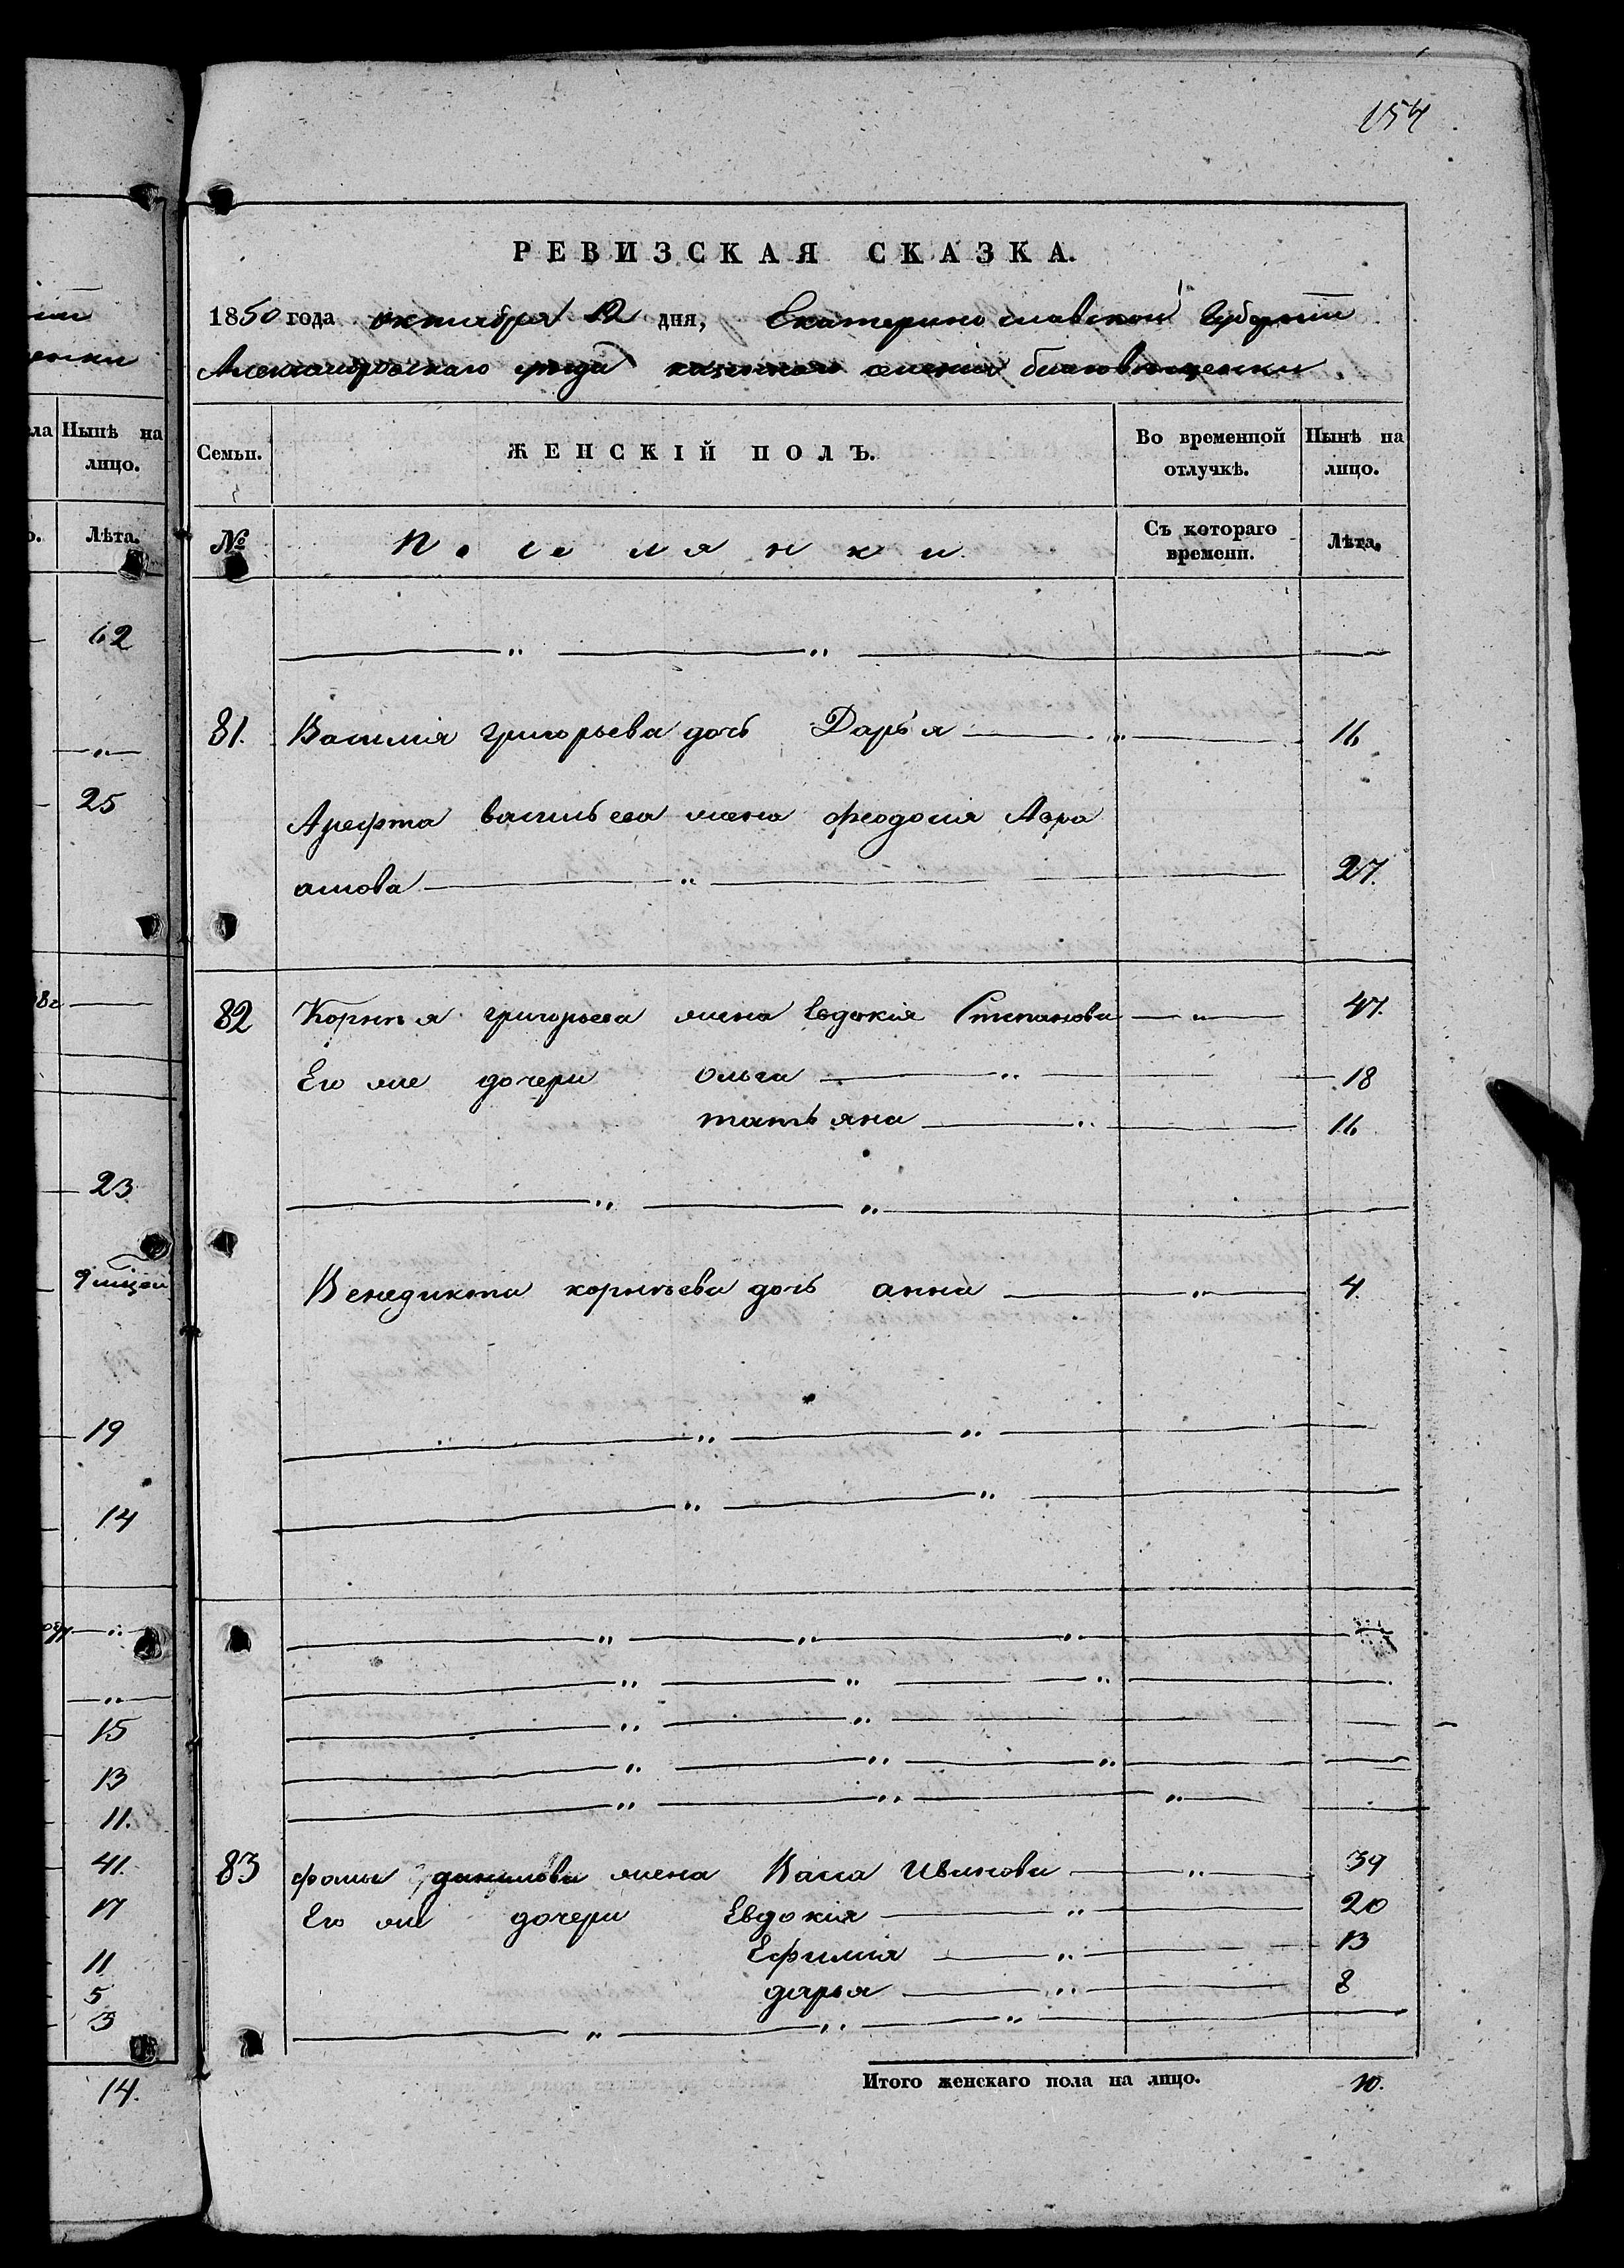 154
РЕВИЗСКАЯ СКАЗКА.
1850 года октября 12 дня, Екатеринославской Губернии
Александровскаго уезда казеннаго селенія благовещенки
Семьи. ЖЕНСКІЙ ПОЛЪ. Во временной отлучкѣ. Нынѣ на лицо.
№ Поселянки Съ котораго времени. Лѣта.
81. Василія григорьева дочь Дарья 16
Арефта васильева жена феодосія Авра
амова 27.
82 Корнѣя григорьева жена Евдокія Степанова 47.
Его же дочери ольга 18
татьяна 16
Венедикта корнѣева дочь анна 4
83 фомы данилова жена Васса Иванова 39
Его же дочери Евдокія 20
Ефимія 13
дарья 8
Итого женскаго пола на лицо. 10.
Нынѣ на
лицо.
Лѣта.
62
25
23
19
14
15
13
11.
41.
17
11
5
3
14.